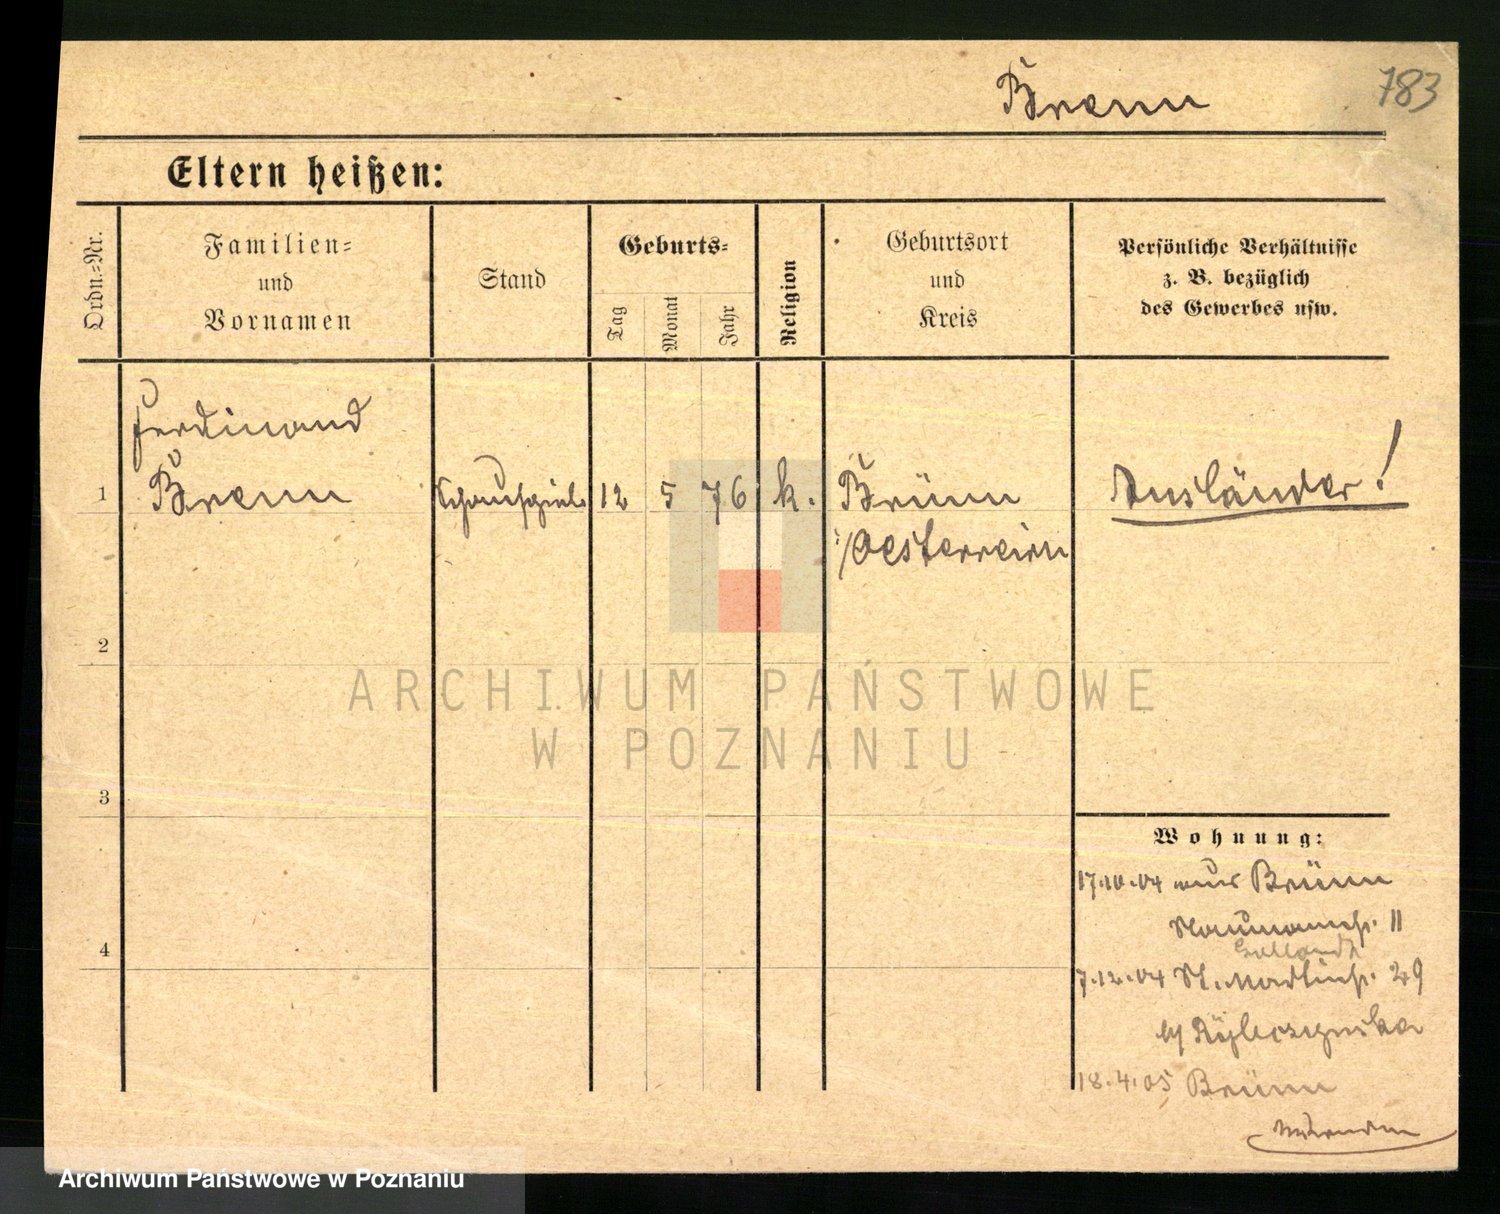 Brenn
783
Eltern heißen:
Ordn.-Nr.
Familien-
und
Vornamen
Stand
Geburts-
Tag
Monat
Jahr
Religion
Geburtsort
und
Kreis
Persönliche Verhältnisse
z. B. bezüglich
des Gewerbes usw.
Ferdinand
1 Brenn Schauspiel. 12 5 76 k. Brünn Ausländer!
/Oesterreich
2
ARCHIWUM PAŃSTWOWE
W POZNANIU
3
Wohnung:
17.10.04 aus Brünn
Naumannstr. 11
4
7.12.04 St. Martinstr. 29
18.4.05 Brünn
Archiwum Państwowe w Poznaniu